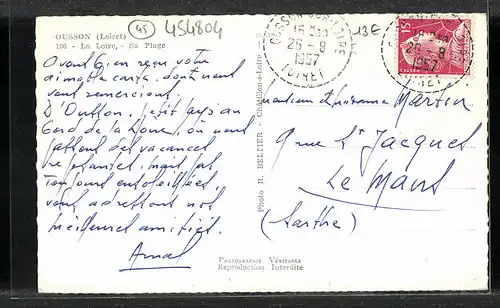 OUSSON (Loiret)
106 - La Loire, - Sa Plage
45
454804
13€
OUSSON SUR LOIRE
18H30
26-8
1957
LOIRET
18H30
26-8
1957
15F
Avons bien reçu votre
aimable carte, dont nous
vous remercions.
D'Ousson, petit pays au
bord de la Loire, où nous
passons des vacances
reposantes, mais pas
toujours ensoleillées,
vous adressons nos
meilleures amitiés.
Monsieur et Madame Martin
9 rue St Jacques
Le Mans
(Sarthe)
Photo R. BELTIER - Châtillon-s-Loire
PHOTOGRAPHIE VÉRITABLE
Reproduction Interdite